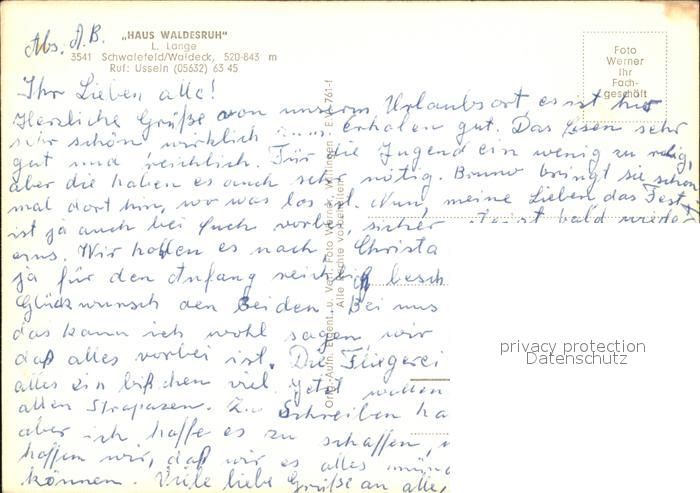 Abs. A.B.
„HAUS WALDESRUH"
L. Lange
3541 Schwalefeld/Waldeck, 520-843 m
Ruf: Usseln (05632) 63 45
Foto
Werner
Ihr
Fach-
geschäft
Ihr Lieben alle!
Herzliche Grüße von unserem Urlaubsort es ist hier
sehr schön wirklich zum erholen gut. Das Essen sehr
gut und reichlich. Für die Jugend ein wenig zu ruhig,
aber die haben es auch sehr nötig. Bruno bringt sie schon
mal dort hin, wo was los ist. Nun, meine Lieben, das Fest
ist ja auch bei Euch vorbei, sicher ist bald wieder
eins. Wir hoffen es nach, Christa
ja für den Anfang reichlich besch
Glückwunsch den Beiden. Bei uns
das kann ich wohl sagen, wir
daß alles vorbei ist. Die Fliegerei
alles ein bißchen viel. Jetzt wollen
allen Strapazen. Zum Schreiben ha
aber ich hoffe es zu schaffen,
hoffen wir, daß wir es alles
können. Viele liebe Grüße an alle,
Orig.-Aufn. Eigent. u. Verl. Foto Werner, Willingen
Alle Rechte vorbehalten
privacy protection
Datenschutz